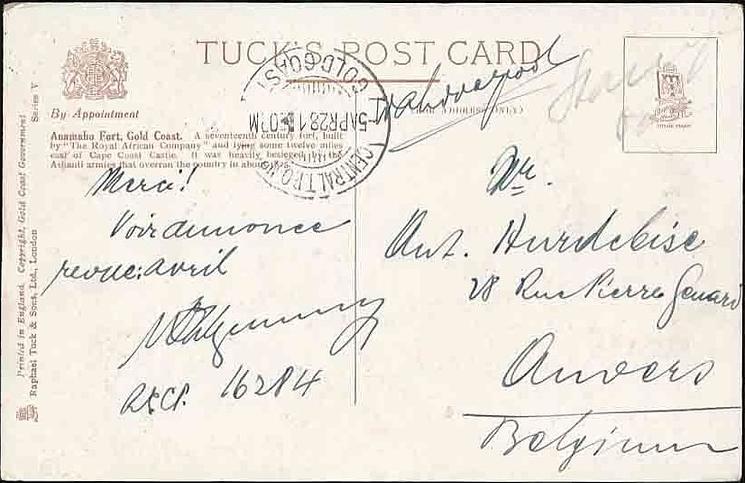 TUCK'S POST CARD
By Appointment
(FOR ADDRESS ONLY)
Anamabo Fort, Gold Coast. A seventeenth century fort, built
by "The Royal African Company" and lying some twelve miles
east of Cape Coast Castle. It was heavily besieged by the
Ashanti armies that overran the country in about
Series V
Printed in England. Copyright, Gold Coast Government
Raphael Tuck & Sons, Ltd., London
GOLD COAST
5 APR 28
CENTRAL T.P.O.
Merci!
Voir annonce
revue: avril
16284
via Liverpool
Mr.
Ant. Hurdebise
28 Rue Pierre Genard
Anvers
Belgium